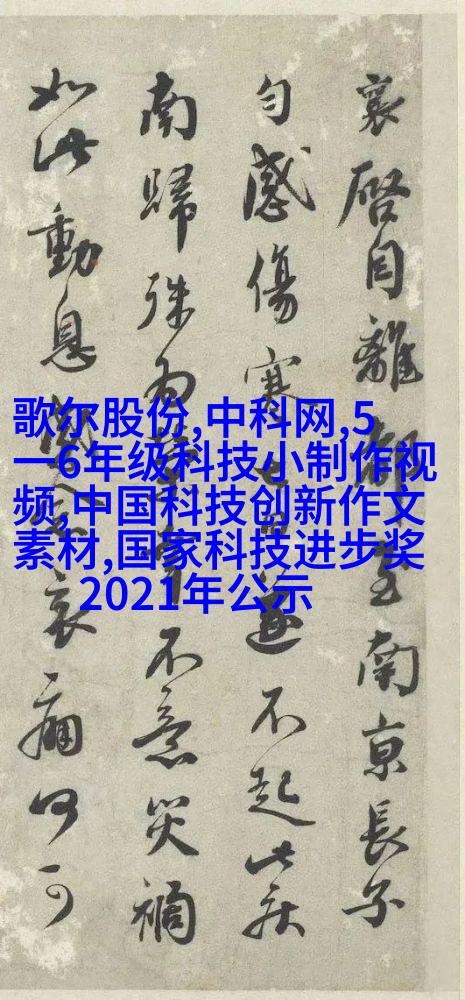 歌尔股份,中科网,5
一6年级科技小制作视
频,中国科技创新作文
素材,国家科技进步奖
2021年公示
襄啓自離都至南京長子
匀感傷寒遂不起此疾
南歸殊為不意災禍
如此動息哀痛何可